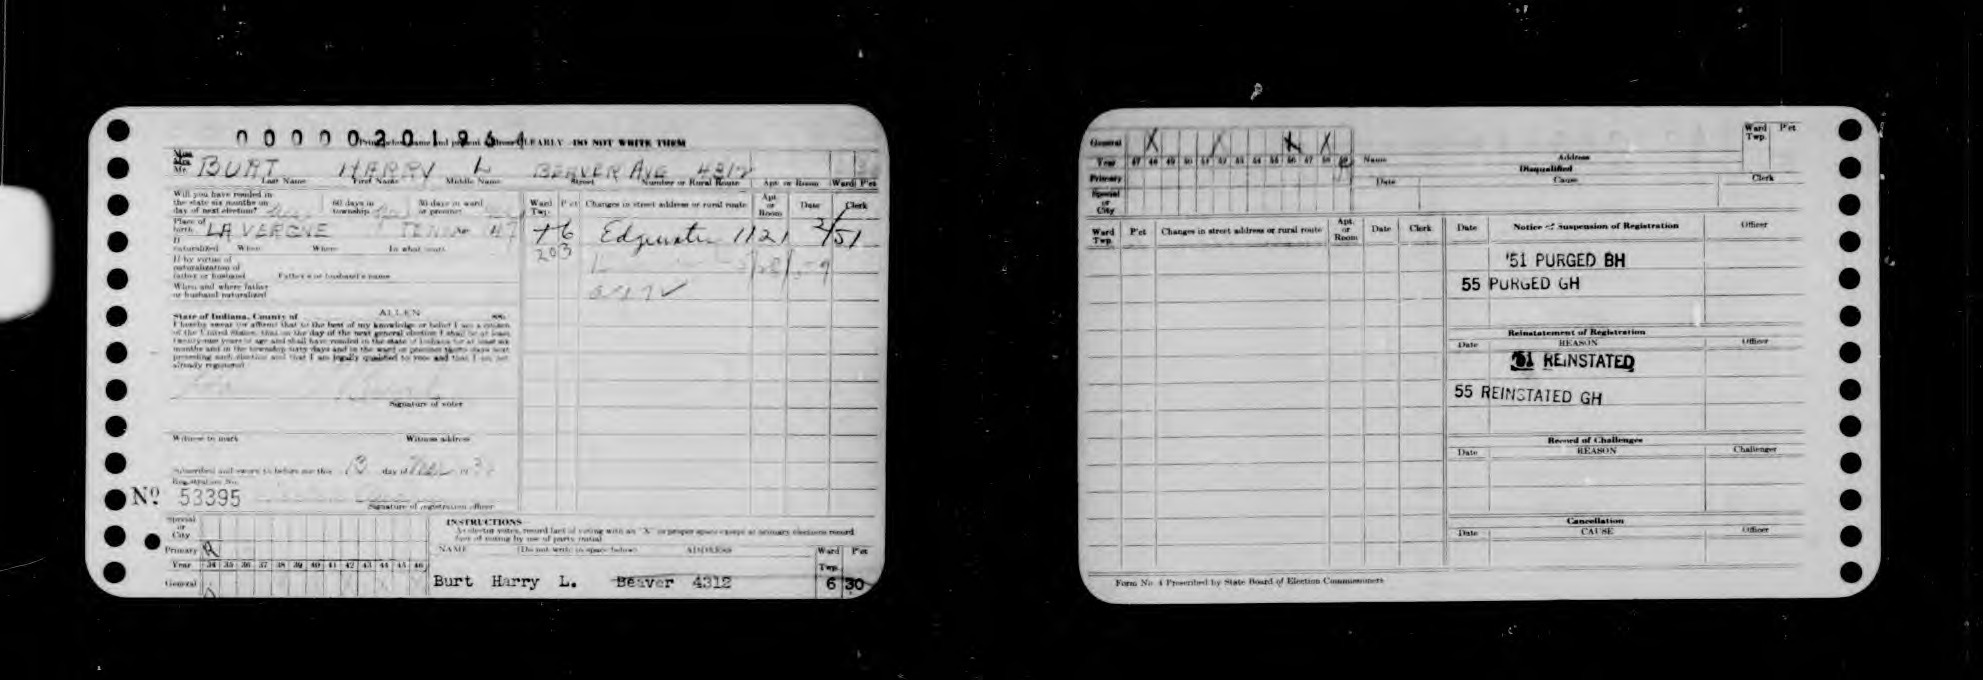 00000201964
Print name and present address CLEARLY—DO NOT WRITE THEM
Miss
Mrs.
Mr. BURT HARRY L BEAVER AVE 4312
Last Name First Name Middle Name Street Number or Rural Route Apt. or Room Ward P'ct
Will you have resided in
the state six months on
day of next election?
60 days in
township
30 days in ward
or precinct
Place of
birth LA VERGNE TENN Age 47
If
naturalized When Where In what court
If by virtue of
naturalization of
father or husband Father's or husband's name
When and where father
or husband naturalized
State of Indiana, County of ALLEN SS:
I hereby swear (or affirm) that to the best of my knowledge or belief I am a citizen
of the United States, that on the day of the next general election I shall be at least
twenty-one years of age and shall have resided in the state of Indiana for at least six
months and in the township sixty days and in the ward or precinct thirty days next
preceding such election and that I am legally qualified to vote and that I am not
already registered
Signature of voter
Witness to mark Witness address
Subscribed and sworn to before me this 13 day of 19
Registration No.
No. 53395
Signature of registration officer
Ward
Twp. P'ct Changes in street address or rural route Apt.
or
Room Date Clerk
6 Edgewater 1121 2/51
203
Special
or
City
Primary R
Year 34 35 36 37 38 39 40 41 42 43 44 45 46
General
INSTRUCTIONS
As elector votes, record fact of voting with an "X" in proper space except at primary elections record
fact of voting by use of party initial
NAME (Do not write in space below) ADDRESS Ward
Twp. P'ct
Burt Harry L. Beaver 4312 6 30
General X X X
Year 47 48 49 50 51 52 53 54 55 56 57 58 59
Primary
Special
or
City
Name Address
Ward
Twp. P'ct
Disqualified
Date Cause Clerk
Ward
Twp. P'ct Changes in street address or rural route Apt.
or
Room Date Clerk
Date Notice of Suspension of Registration Officer
'51 PURGED BH
55 PURGED GH
Reinstatement of Registration
Date REASON Officer
51 REINSTATED
55 REINSTATED GH
Record of Challenges
Date REASON Challenger
Cancellation
Date CAUSE Officer
Form No. 4 Prescribed by State Board of Election Commissioners